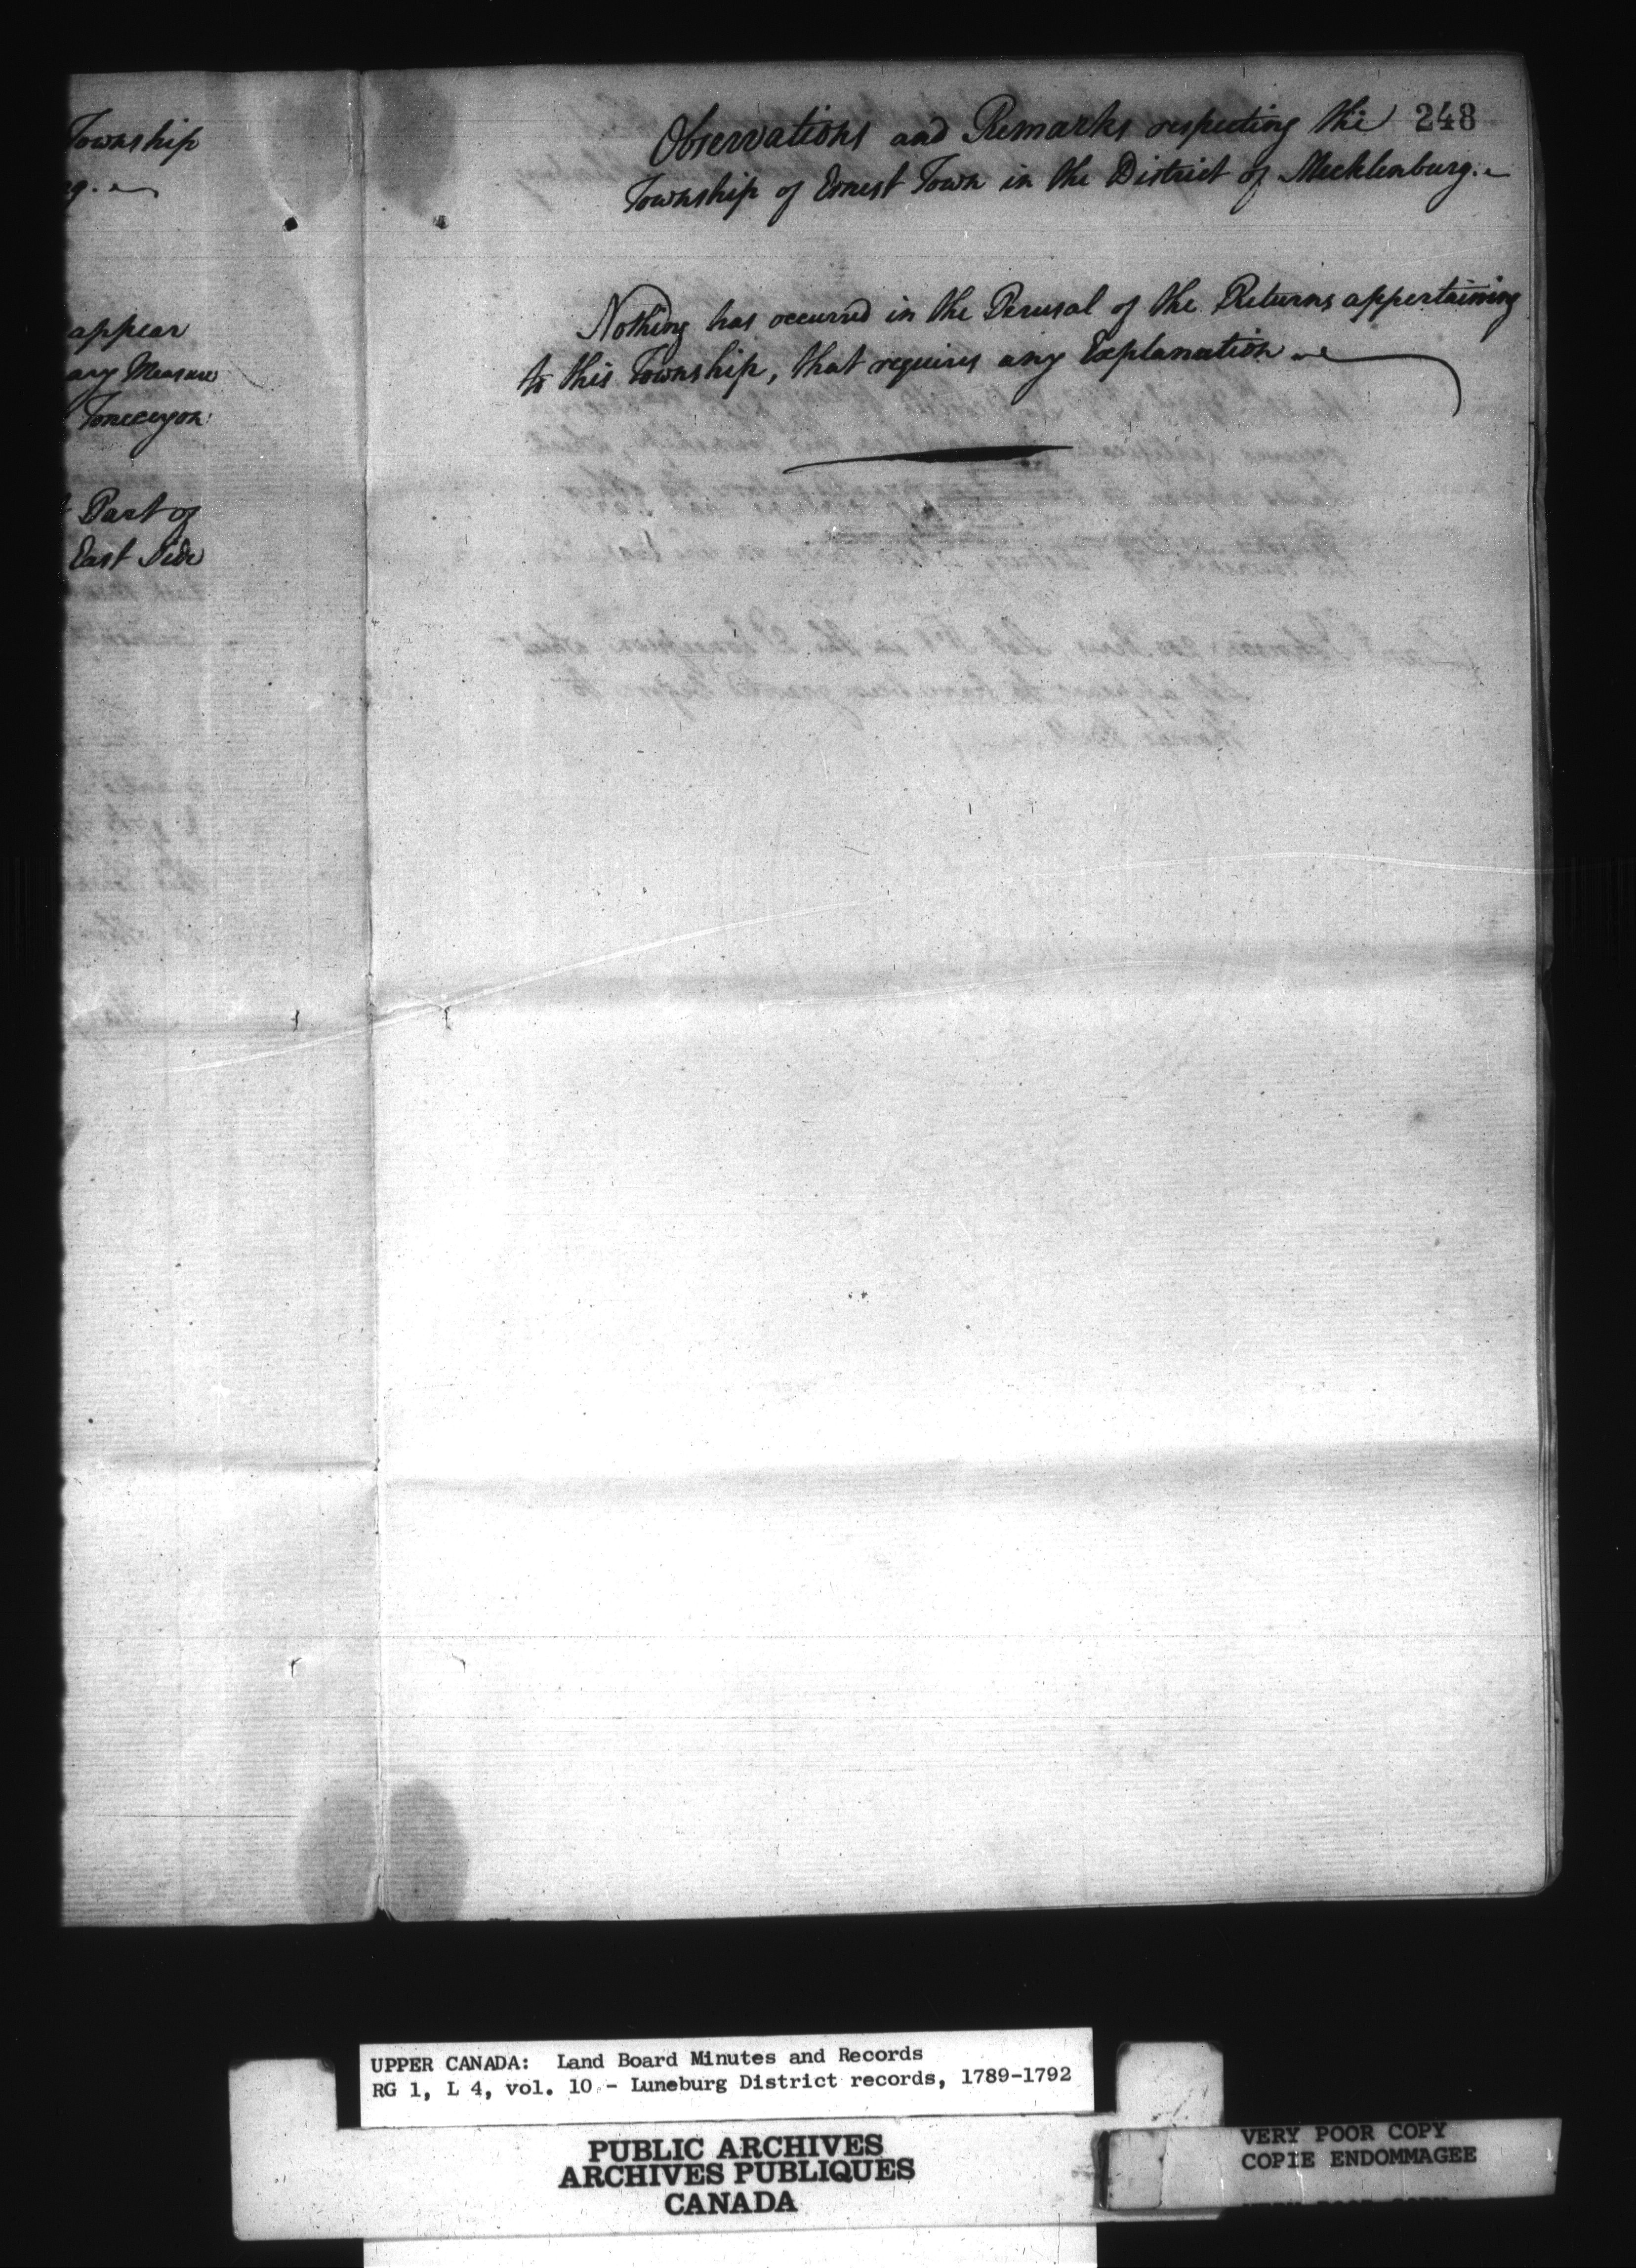 Township
appear
ary Measure
Part of
East Side
248
Observations and Remarks respecting the
Township of Ernest Town in the District of Mecklenburg.
Nothing has occurred in the Perusal of the Returns appertaining
to this Township, that requires any Explanation
UPPER CANADA: Land Board Minutes and Records
RG 1, L 4, vol. 10 - Luneburg District records, 1789-1792
PUBLIC ARCHIVES
ARCHIVES PUBLIQUES
CANADA
VERY POOR COPY
COPIE ENDOMMAGEE